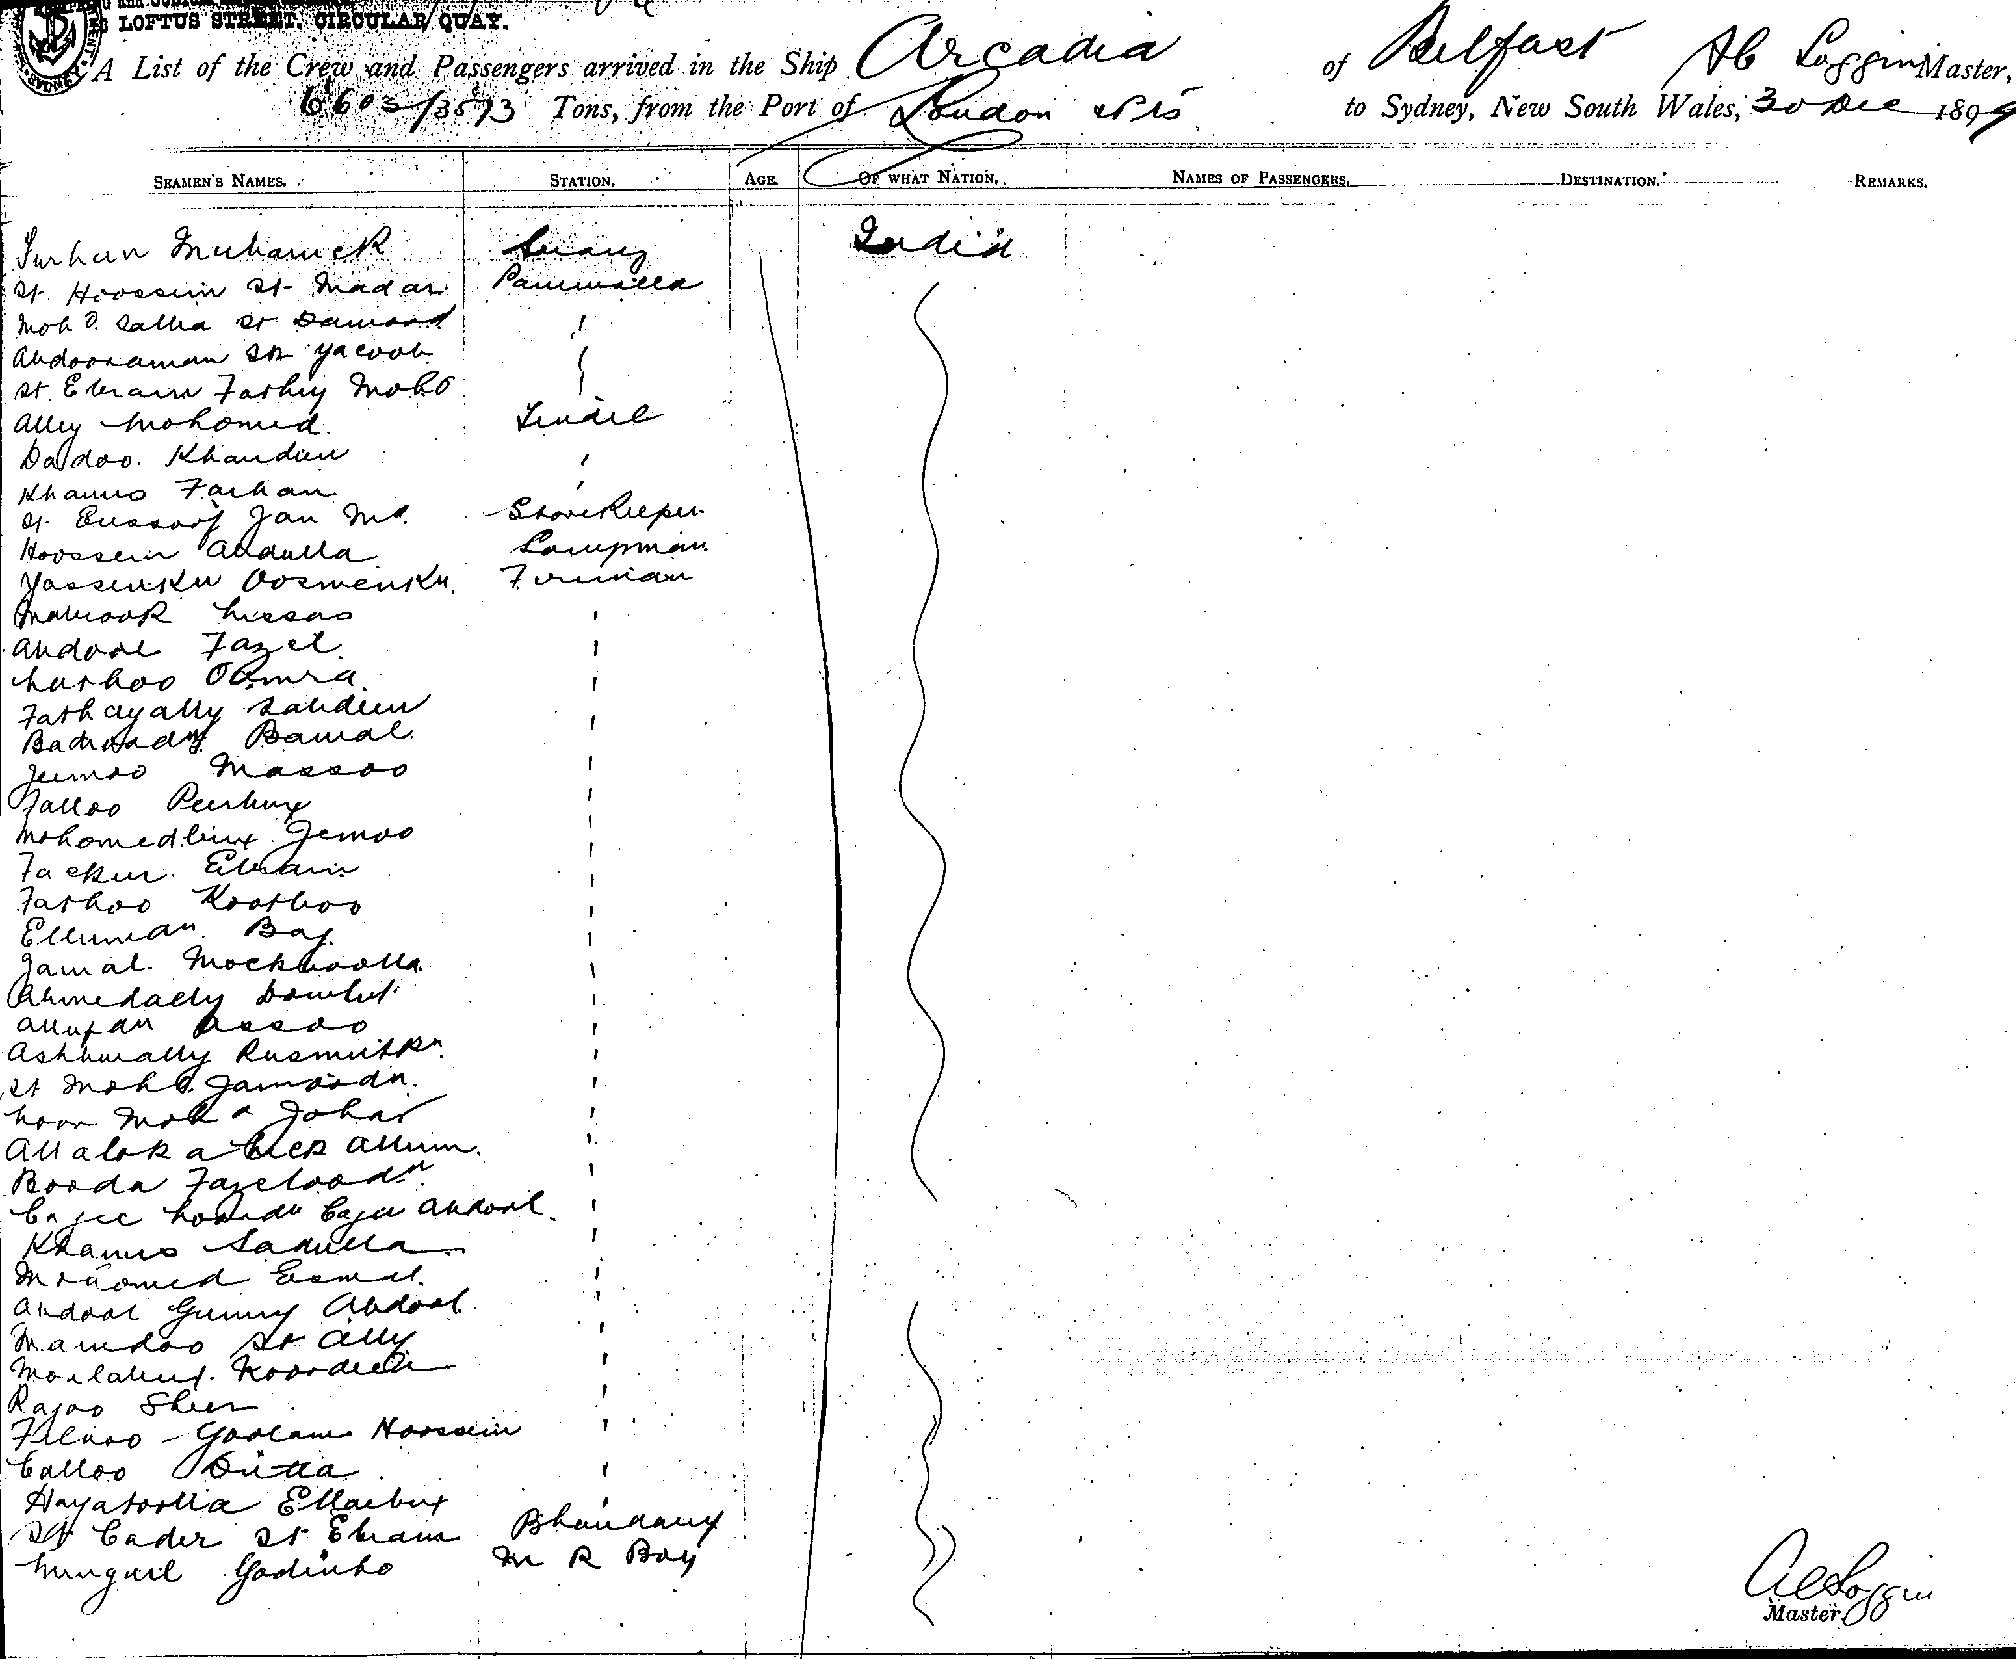 LOFTUS STREET, CIRCULAR QUAY.
A List of the Crew and Passengers arrived in the Ship Arcadia of Belfast Loggin Master,
6603/3573 Tons, from the Port of London to Sydney, New South Wales, 30 Dec 1899
SEAMEN'S NAMES. STATION. AGE OF WHAT NATION. NAMES OF PASSENGERS. DESTINATION. REMARKS.
Farhan Mubarick Serang India
St. Hoossein St. Madar Paniwalla
Moh d. Salha St Damood
Abdooraman St. Yacoob
St. Ebram Fathiy Moh d
Alley Mohomed. Tindel
Dadoo. Khandan
Khamis Farhan
St. Eussoof Jan Md. Storekeeper
Hoossein Abdulla Lampman
Yassenkn Oosmenkn. Fireman
Mabrook
Abdool Fazel.
Nathoo
Fathayally
Bamal.
Jumoo Massoo
Jalloo Peerbux
Mohomedbux Jemoo
Fackir. Ebram
Fathoo Kootboo
Baj.
Jamal. Mockboolla
Ahmedally
Assoo
Ashburally
St Moh d. Jamoodn.
Noor Moh d Johar
Allum.
Booda Fazelood n
Abdool.
Khamis Sadulla
Mohomed Esmal.
Abdool Gunny Abdool
Mamdoo St Ally
Moulabux. Noordeen
Rajoo Sheer
Goolam Hoossein
Calloo Ditta
Hayatoolla Ellaebux
St Cader St Ebram Bhandary
Minguel Godinho M R Boy
Loggin
Master